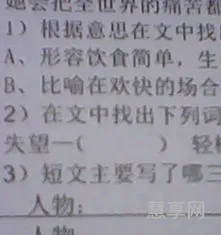 她会把全世界的痛苦都
1）根据意思在文中找
A、形容饮食简单，生
B、比喻在欢快的场合
2）在文中找出下列词
失望—（ ） 轻
3）短文主要写了哪三
人物：
人物
慧享网